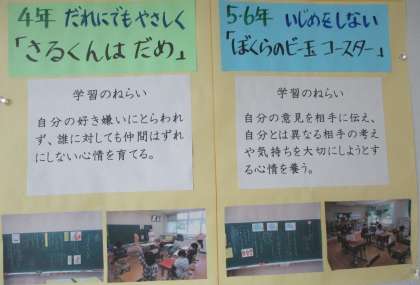 4年 だれにでもやさしく
「さるくんは だめ」
学習のねらい
自分の好き嫌いにとらわれ
ず、誰に対しても仲間はずれ
にしない心情を育てる。
5・6年 いじめをしない
「ぼくらのビー玉 コースター」
学習のねらい
自分の意見を相手に伝え、
自分とは異なる相手の考え
や気持ちを大切にしようとす
る心情を養う。